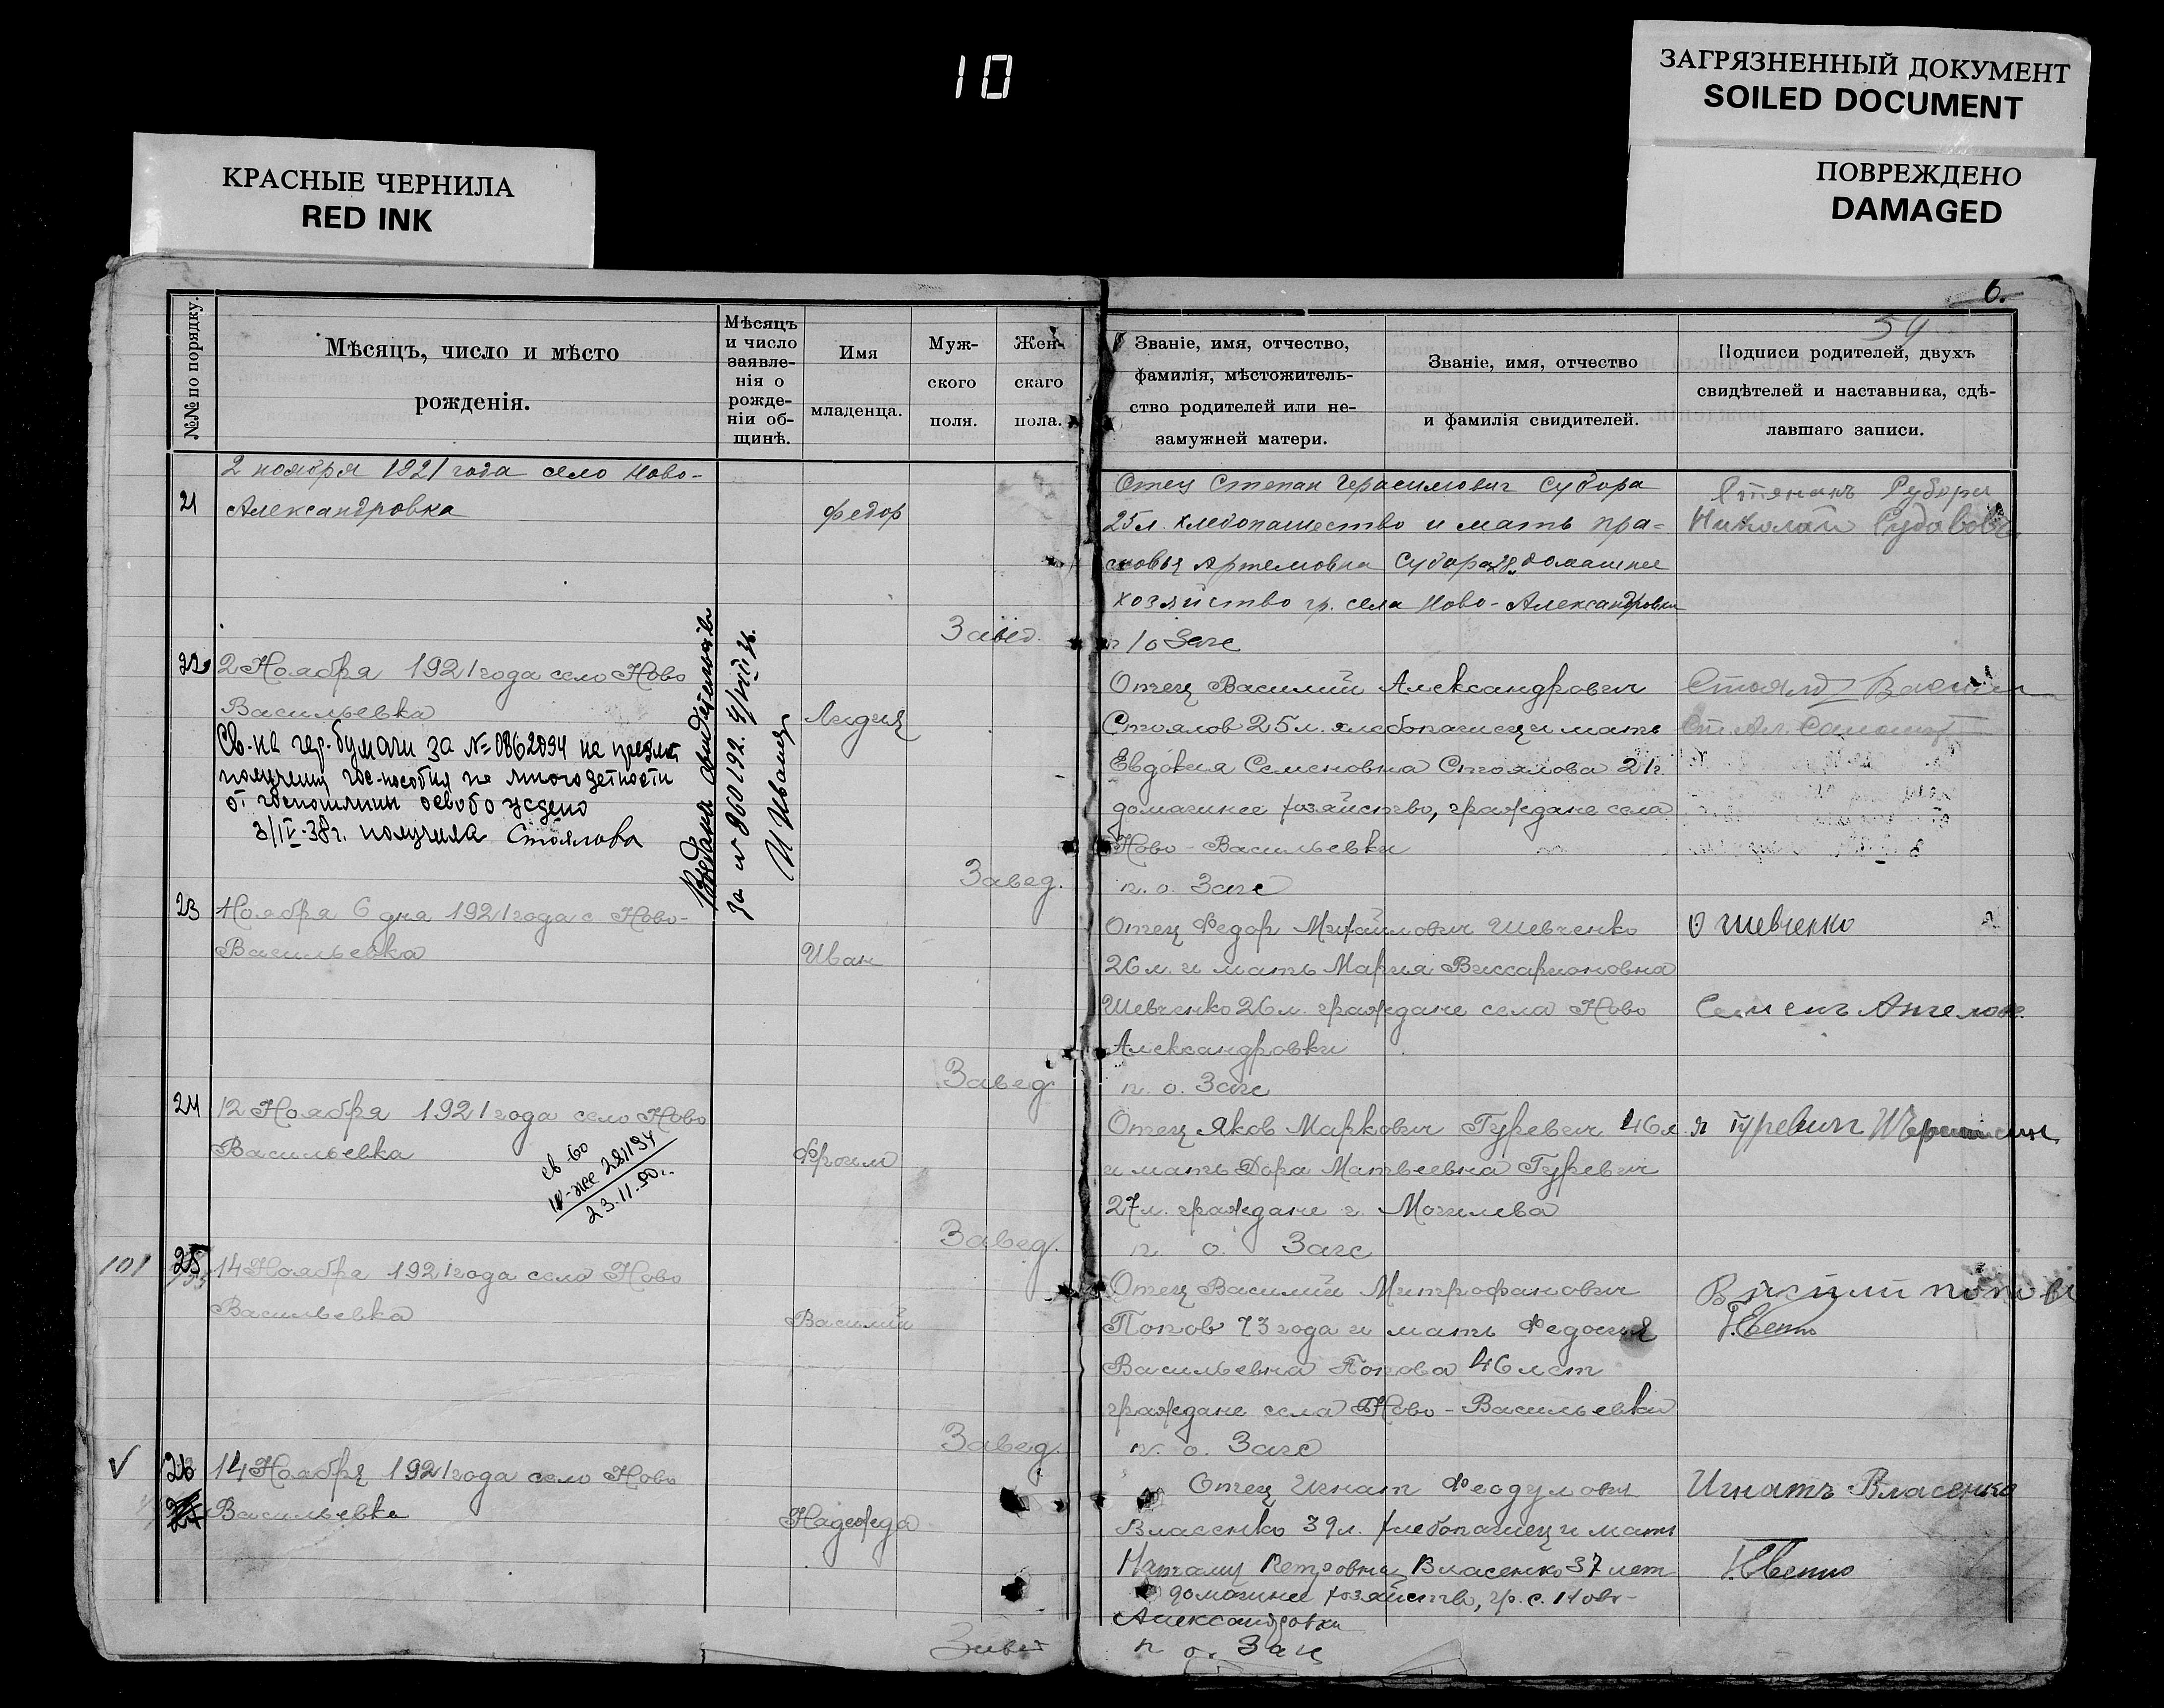 10
ЗАГРЯЗНЕННЫЙ ДОКУМЕНТ
SOILED DOCUMENT
ПОВРЕЖДЕНО
DAMAGED
КРАСНЫЕ ЧЕРНИЛА
RED INK
6.
54
№№ по порядку.
Мѣсяцъ, число и мѣсто
рожденія.
Мѣсяцъ
и число
заявле-
нія о
рожде-
ніи об-
щинѣ.
Имя
младенца.
Муж-
ского
поля.
Жен-
скаго
пола.
Званіе, имя, отчество,
фамилія, мѣстожитель-
ство родителей или не-
замужней матери.
Званіе, имя, отчество
и фамилія свидителей.
Подписи родителей, двухъ
свидѣтелей и наставника, сдѣ-
лавшаго записи.
21
2 ноября 1921 года село Ново-
Александровка
Федор
Отец Степан Герасимович Субора
25 л. хлебопашество и мать Пра-
сковья Артемовна Субора 28 домашнее
хозяйство гр. села Ново-Александровки
Николай
Завед.
п/о Загс
22
2 Ноября 1921 года село Ново
Васильевка
Лидия
Св-на гер. бумаги за №0862094 на предмет
получения гос-пособия по многодетности
от госпошлины освобождено
3/IV-38г. получила Стоялова
Отец Василий Александрович
Стоялов 25 л. хлебопашец и мать
Евдокия Семеновна Стоялова 21 г.
домашнее хозяйство, граждане села
Ново-Васильевки
Завед.
п. о. Загс
23
Ноября 6 дня 1921 года с Ново-
Васильевка
Иван
Отец Федор Михайлович Шевченко
26 л. и мать Мария Виссарионовна
Шевченко 26 л. граждане села Ново
Александровки
Шевченко
Семенъ Ангелов
Завед.
п. о. Загс
24
12 Ноября 1921 года село Ново
Васильевка
Фроим
св-во
281194
23.11.50г.
Отец Яков Маркович Гуревич 46 л
и мать Дора Матвеевна Гуревич
27 л. граждане г. Могилева
Я Гуревич
Завед.
п. о. Загс
101
25
14 Ноября 1921 года село Ново
Васильевка
Василий
Отец Василий Митрофанович
Попов 73 года и мать Федосия
Васильевна Попова 46 лет
граждане села Ново-Васильевки
Василий Попов
Завед.
п. о. Загс
26
14 Ноября 1921 года село Ново
Васильевка
Надежда
Отец Игнат Феодулович
Власенко 39 л. хлебопашец и мать
Наталия Петровна Власенко 37 лет
домашнее хозяйство, гр. с. Ново-
Александровки
Игнатъ Власенко
Завед
п о. Загс